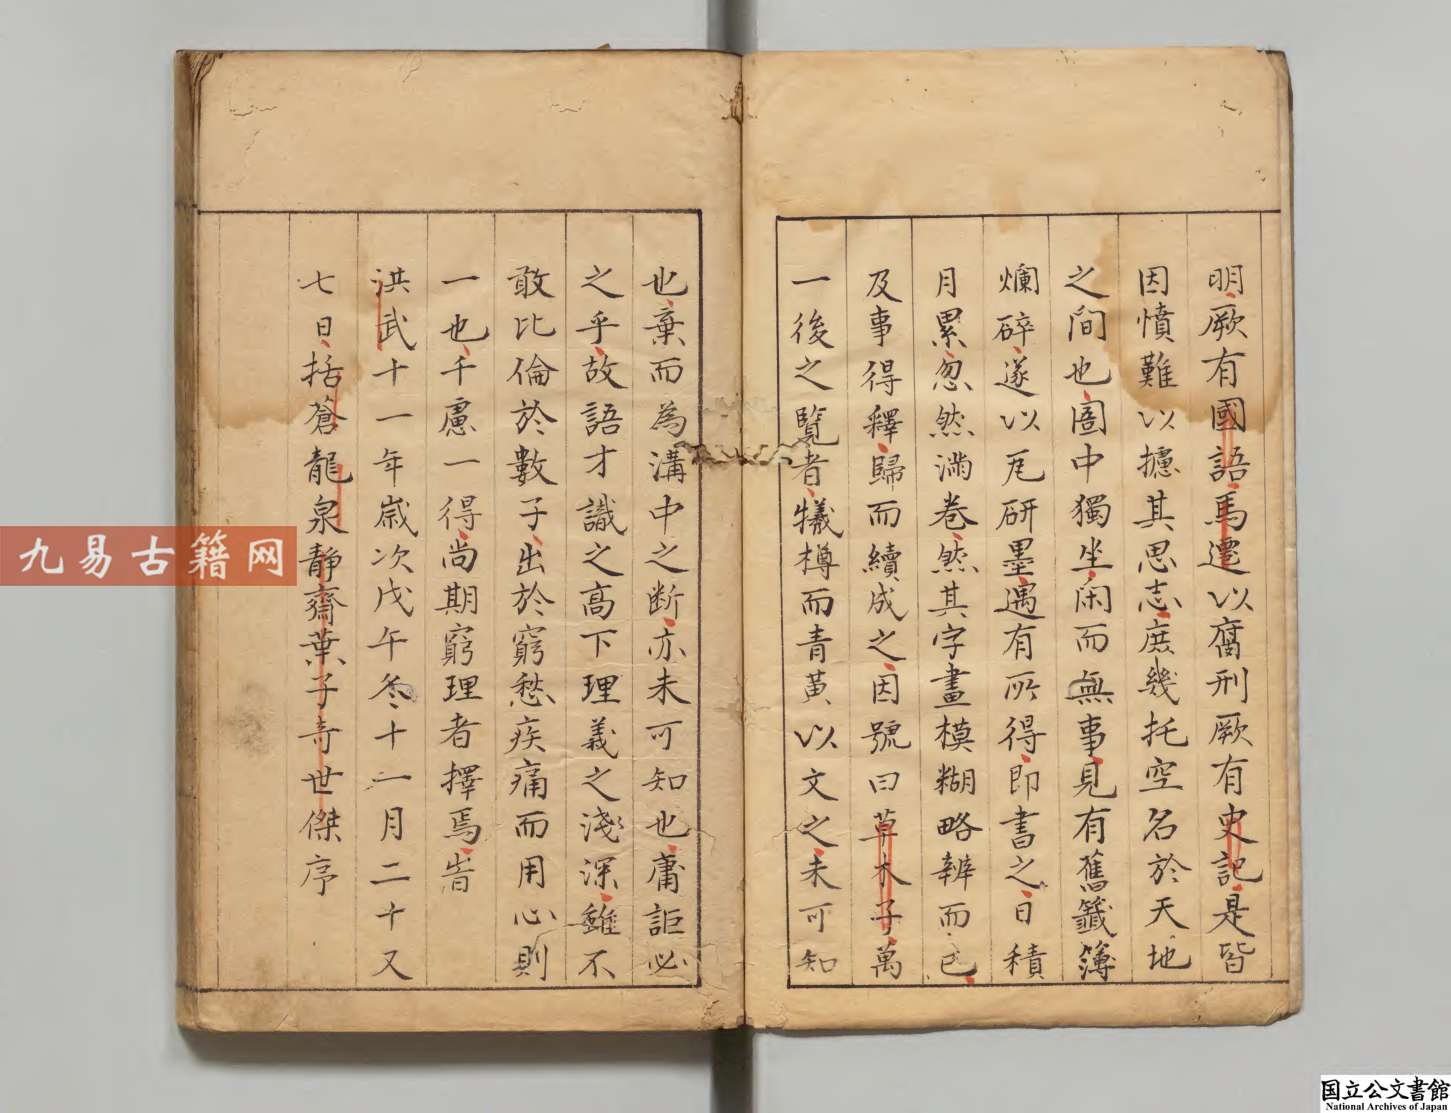 明厥有國語馬遷以腐刑厥有史記是皆
因憤難以攄其思志庶幾托空名於天地
之間也圄中獨坐闲而無事見有舊籤簿
爛碎遂以瓦研墨遇有所得即書之日積
月累忽然滿卷然其字畫模糊略辨而已
及事得釋歸而續成之因號曰草木子萬
一後之覽者犧樽而青黃以文之未可知
也棄而為溝中之断亦未可知也庸詎必
之乎故語才識之高下理義之淺深雖不
敢比倫於數子出於窮愁疾痛而用心則
一也千慮一得尚期窮理者擇焉旹
洪武十一年歲次戊午冬十一月二十又
七日括蒼龍泉靜齋葉子奇世傑序
九易古籍网
国立公文書館
National Archives of Japan